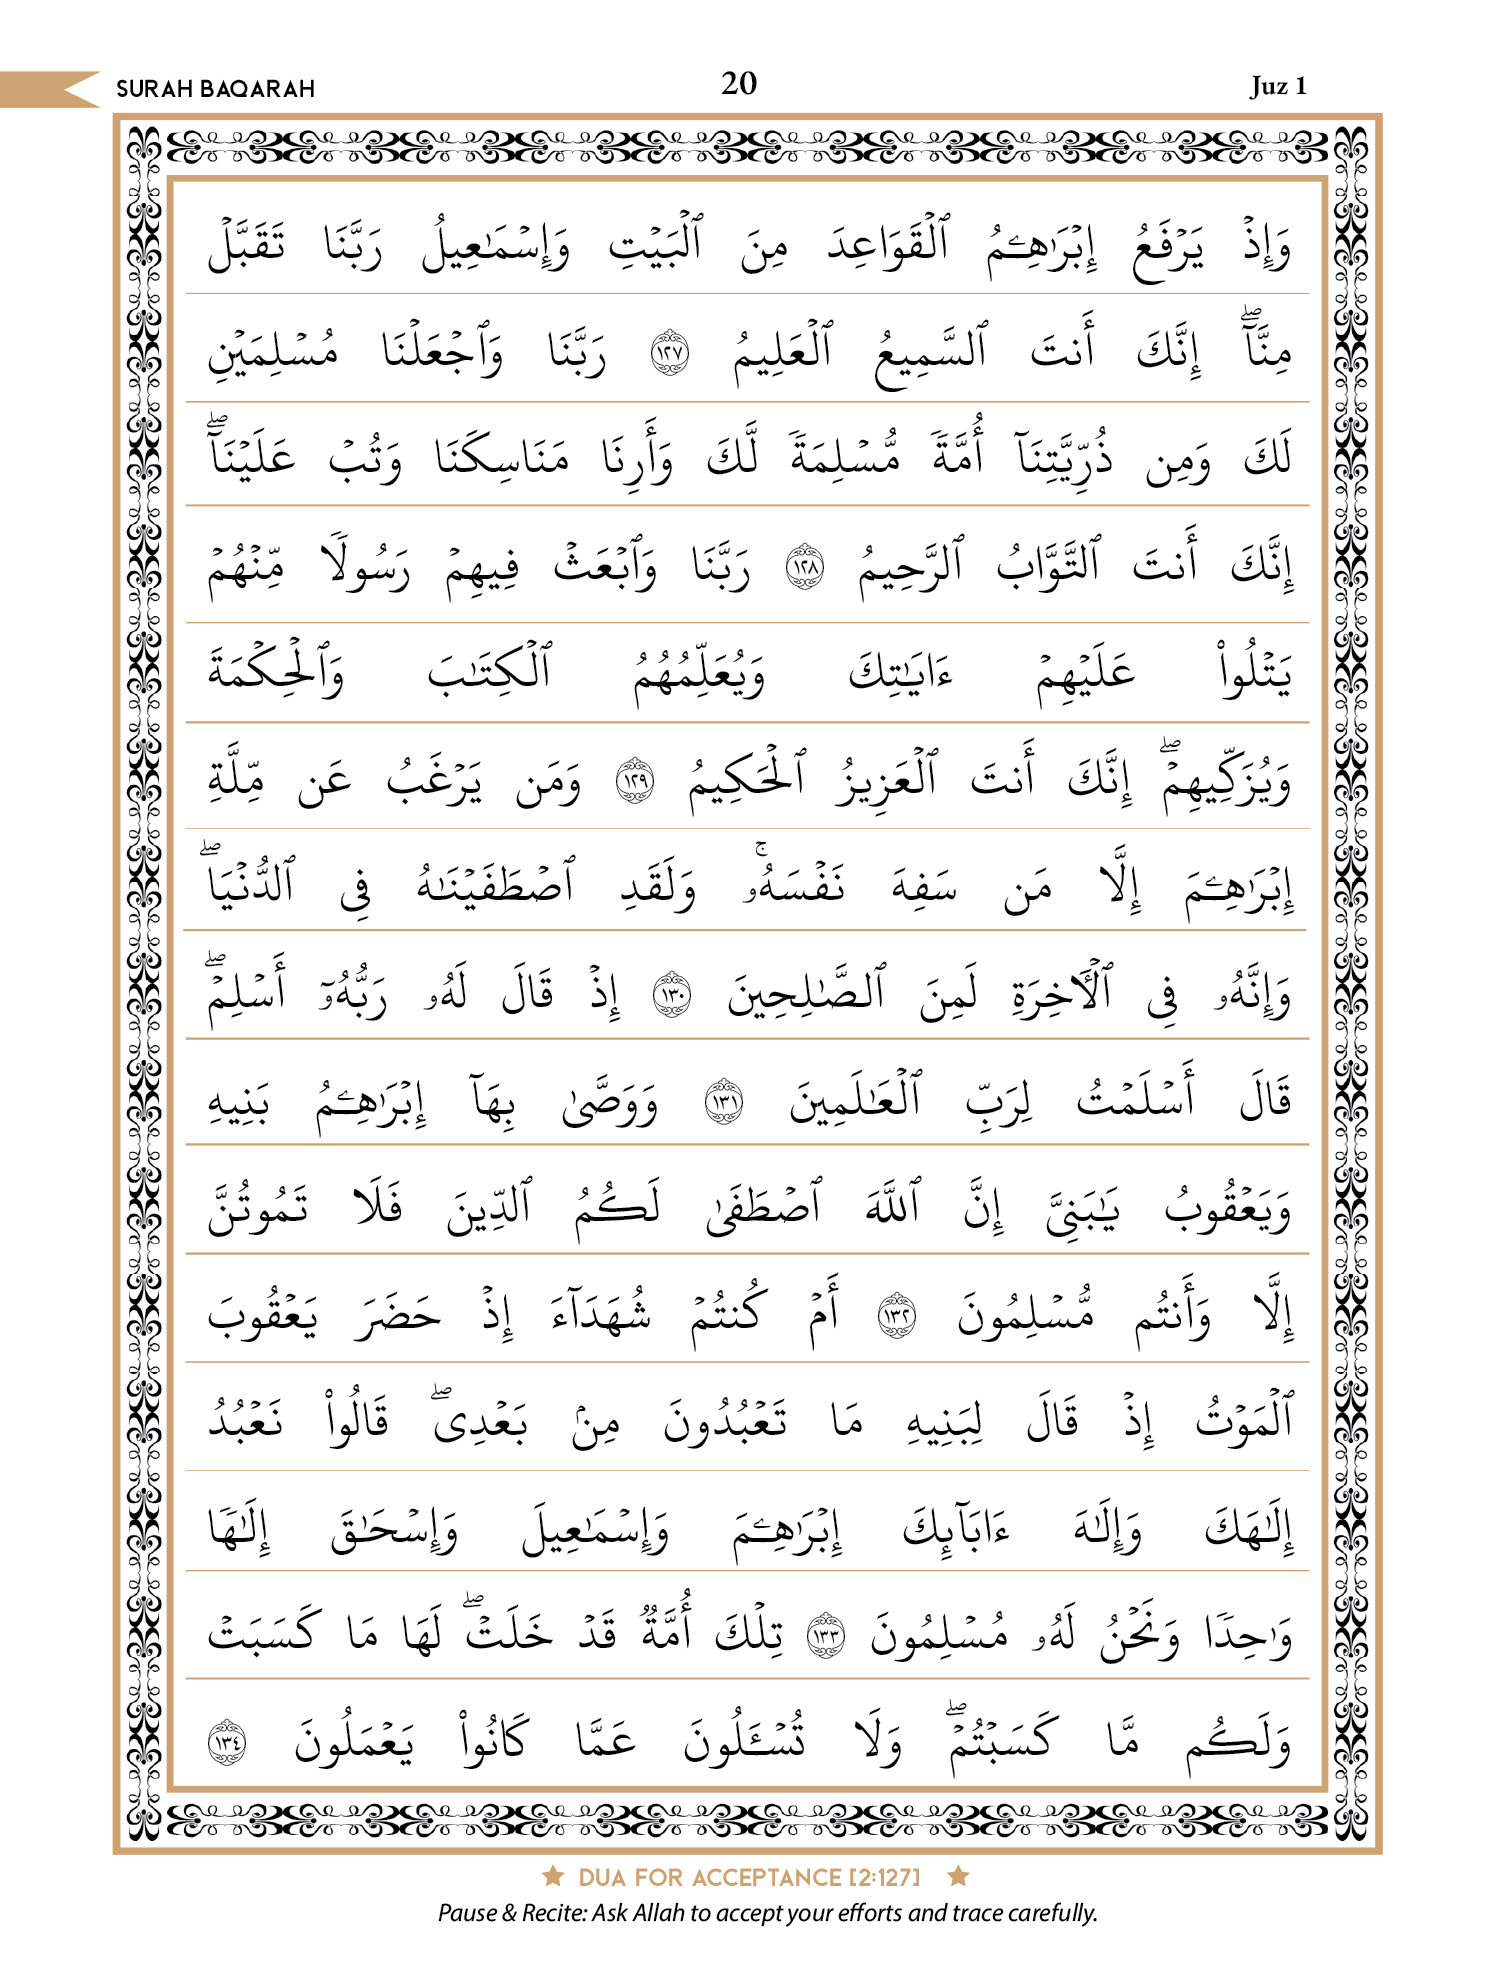 SURAH BAQARAH 20 Juz 1
وَإِذۡ يَرۡفَعُ إِبۡرَٰهِـۧمُ ٱلۡقَوَاعِدَ مِنَ ٱلۡبَيۡتِ وَإِسۡمَٰعِيلُ رَبَّنَا تَقَبَّلۡ
مِنَّآۖ إِنَّكَ أَنتَ ٱلسَّمِيعُ ٱلۡعَلِيمُ ١٢٧ رَبَّنَا وَٱجۡعَلۡنَا مُسۡلِمَيۡنِ
لَكَ وَمِن ذُرِّيَّتِنَآ أُمَّةٗ مُّسۡلِمَةٗ لَّكَ وَأَرِنَا مَنَاسِكَنَا وَتُبۡ عَلَيۡنَآۖ
إِنَّكَ أَنتَ ٱلتَّوَّابُ ٱلرَّحِيمُ ١٢٨ رَبَّنَا وَٱبۡعَثۡ فِيهِمۡ رَسُولٗا مِّنۡهُمۡ
يَتۡلُواْ عَلَيۡهِمۡ ءَايَٰتِكَ وَيُعَلِّمُهُمُ ٱلۡكِتَٰبَ وَٱلۡحِكۡمَةَ
وَيُزَكِّيهِمۡۖ إِنَّكَ أَنتَ ٱلۡعَزِيزُ ٱلۡحَكِيمُ ١٢٩ وَمَن يَرۡغَبُ عَن مِّلَّةِ
إِبۡرَٰهِـۧمَ إِلَّا مَن سَفِهَ نَفۡسَهُۥۚ وَلَقَدِ ٱصۡطَفَيۡنَٰهُ فِي ٱلدُّنۡيَاۖ
وَإِنَّهُۥ فِي ٱلۡأٓخِرَةِ لَمِنَ ٱلصَّٰلِحِينَ ١٣٠ إِذۡ قَالَ لَهُۥ رَبُّهُۥٓ أَسۡلِمۡۖ
قَالَ أَسۡلَمۡتُ لِرَبِّ ٱلۡعَٰلَمِينَ ١٣١ وَوَصَّىٰ بِهَآ إِبۡرَٰهِـۧمُ بَنِيهِ
وَيَعۡقُوبُ يَٰبَنِيَّ إِنَّ ٱللَّهَ ٱصۡطَفَىٰ لَكُمُ ٱلدِّينَ فَلَا تَمُوتُنَّ
إِلَّا وَأَنتُم مُّسۡلِمُونَ ١٣٢ أَمۡ كُنتُمۡ شُهَدَآءَ إِذۡ حَضَرَ يَعۡقُوبَ
ٱلۡمَوۡتُ إِذۡ قَالَ لِبَنِيهِ مَا تَعۡبُدُونَ مِنۢ بَعۡدِيۖ قَالُواْ نَعۡبُدُ
إِلَٰهَكَ وَإِلَٰهَ ءَابَآئِكَ إِبۡرَٰهِـۧمَ وَإِسۡمَٰعِيلَ وَإِسۡحَٰقَ إِلَٰهٗا
وَٰحِدٗا وَنَحۡنُ لَهُۥ مُسۡلِمُونَ ١٣٣ تِلۡكَ أُمَّةٞ قَدۡ خَلَتۡۖ لَهَا مَا كَسَبَتۡ
وَلَكُم مَّا كَسَبۡتُمۡۖ وَلَا تُسۡـَٔلُونَ عَمَّا كَانُواْ يَعۡمَلُونَ ١٣٤
DUA FOR ACCEPTANCE [2:127]
Pause & Recite: Ask Allah to accept your efforts and trace carefully.